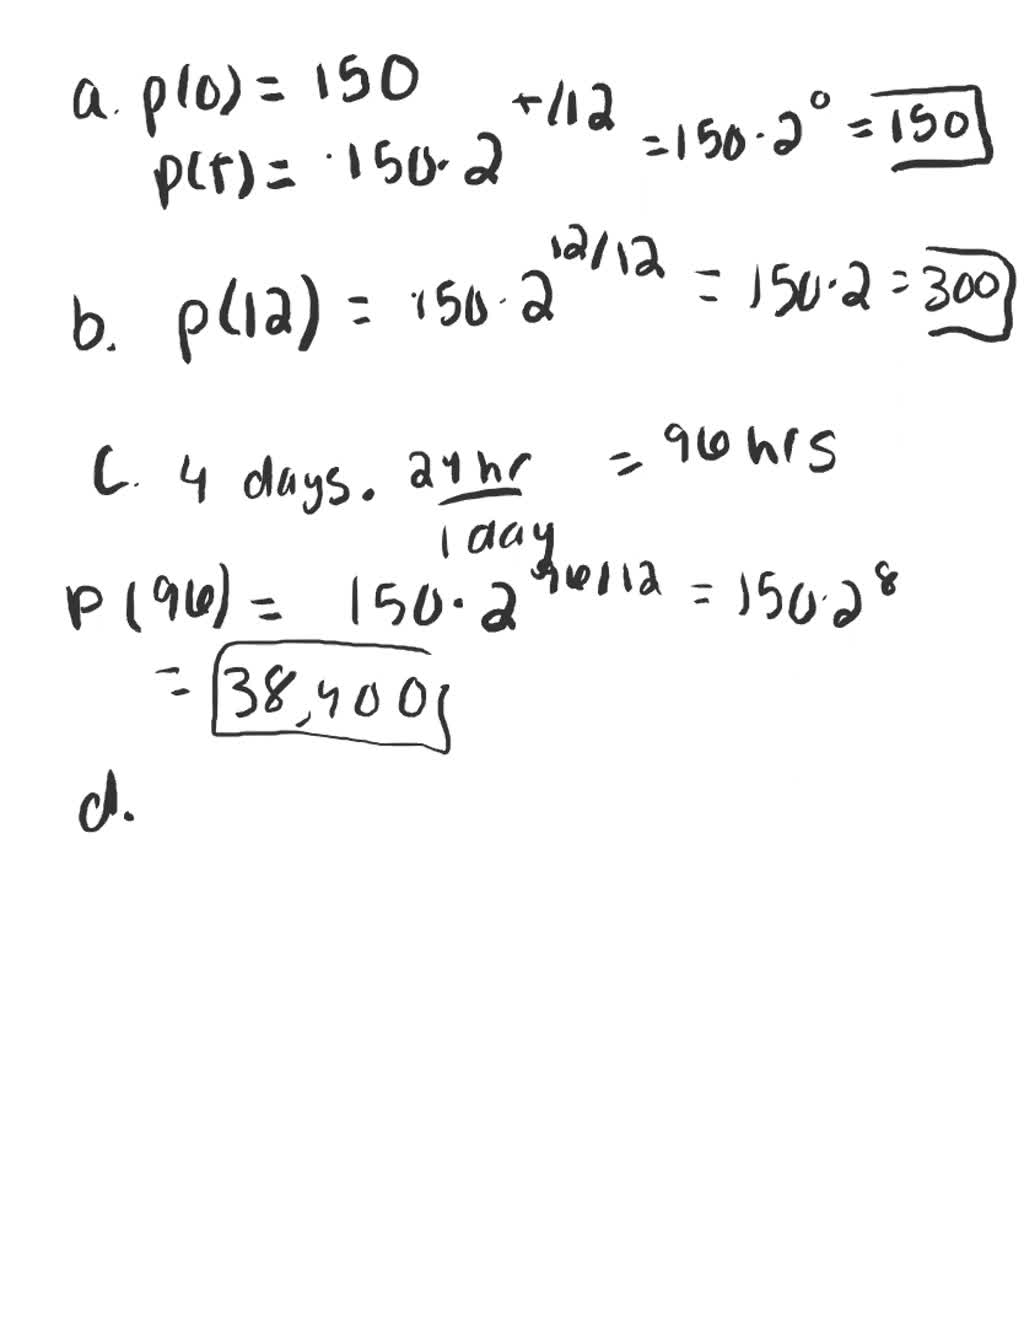 a. p(0) = 150
p(t) = 150 · 2^t/12 = 150 · 2^0 = 150
b. p(12) = 150 · 2^12/12 = 150 · 2 = 300
C. 4 days · 24 hr / 1 day = 96 hrs
P(96) = 150 · 2^96/12 = 150 · 2^8
= 38,400
d.